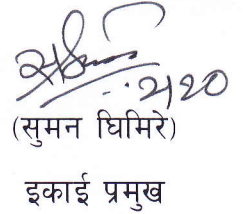 २।२०
(सुमन घिमिरे)
इकाई प्रमुख